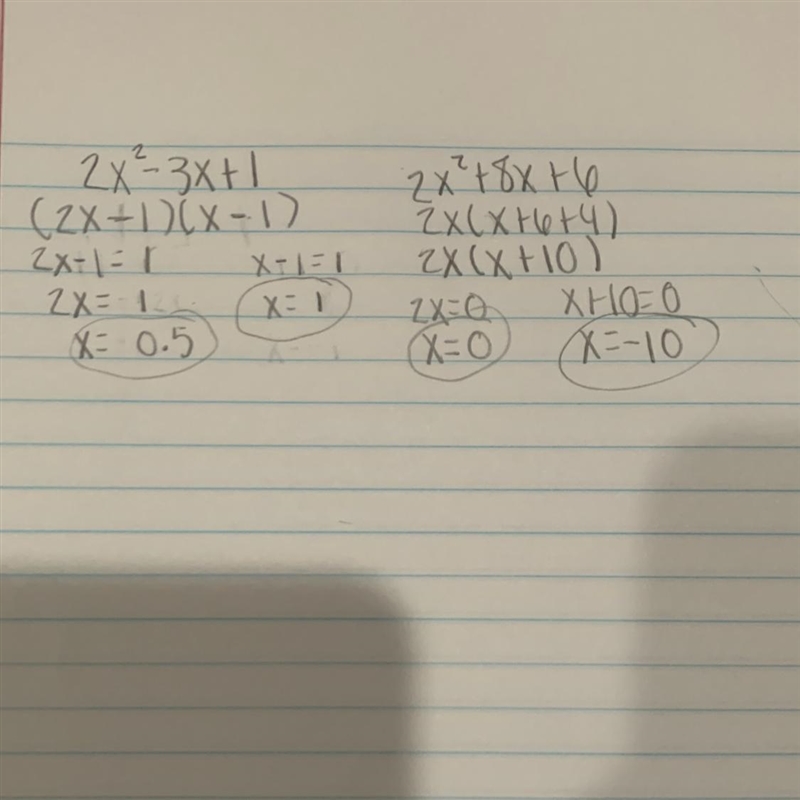 2x² - 3x + 1
(2x - 1)(x - 1)
2x - 1 = 1 x - 1 = 1
2x = 1 x = 1
x = 0.5
2x² + 8x + 6
2x(x + 6 + 4)
2x(x + 10)
2x = 0 x + 10 = 0
x = 0 x = -10